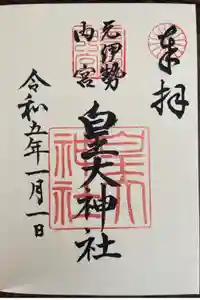 奉拝
元伊勢
内宮
皇大神社
令和五年一月一日